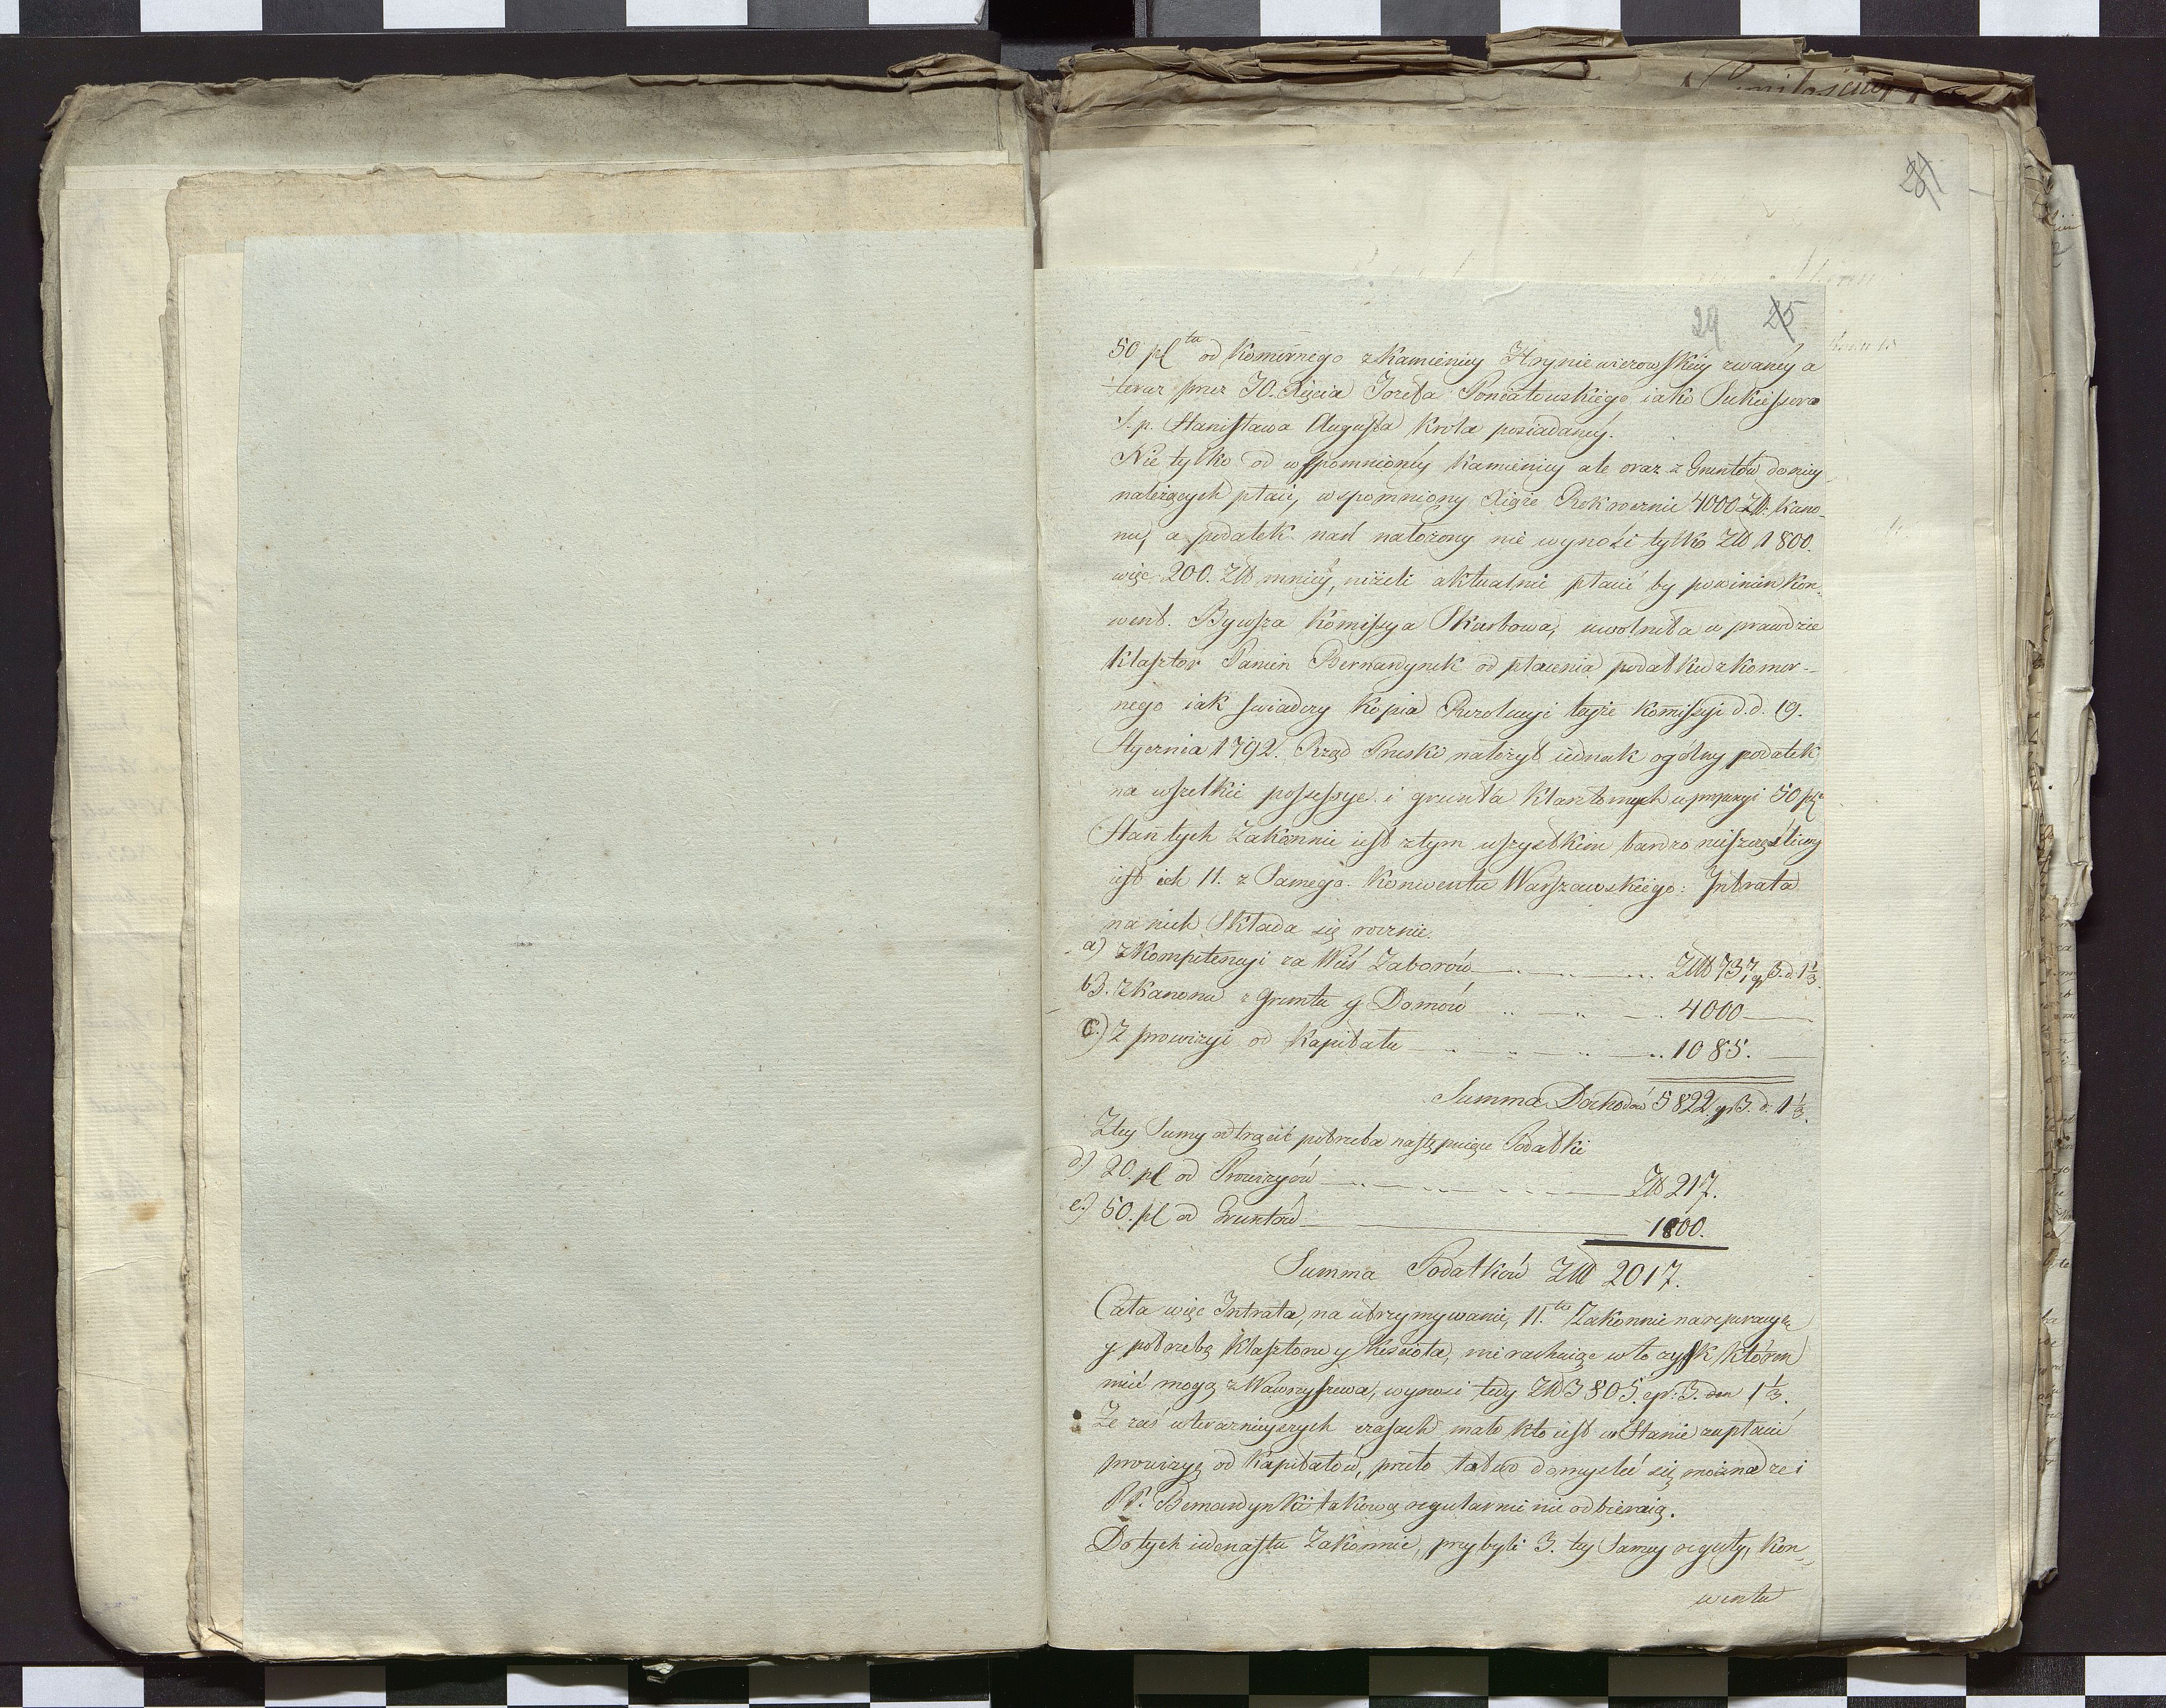 29 25
50 pl tu od Komórnego z Kamienicy Hryniewiczowskiéy zwanéy a
teraz przez JO. Xięcia Jozefa Poniatowskiego iako Sukcessora
S. p. Stanisława Augusta Krola posiadanéy.
Nie tylko od wspomnionéy Kamienicy ale oraz z Gruntów do niey
należących płaci, wspomniony Xiąże Rokrocznie 4000 Złł. Kano-
nu, a podatek nań nałożony nie wynosi tylko Złł 1800.
więc 200. Złł mniéy, niżeli aktualnie płacić by powinien Kon-
went. Bywsza Komissya Skarbowa, uwolniła w prawdzie
Klasztor Panien Bernardynek od płacenia podatku z komor-
nego iak swiadczy Kopia Rezolucyi teyże Komissyi d.d. 19.
Stycznia 1792. Rząd Pruski nałożył iednak ogólny podatek
na wszelkie possessye i grunta Klasztornych w propozycyi 50 pl
Stan tych Zakonnic iest z tym wszystkim bardzo nieszczęśliwy
iest ich 11. z Samego Konwentu Warszawskiego: Intrata
na nich Składa się rocznie.
a) z Kompetencyi za Wieś Zaborów Złł 737 gr 3. d. 1 1/3.
b). z Kanonu z Gruntu y Domów 4000
c.) Z prowizyi od Kapitału 1085.
Summa Dochodów 5822. gr 3. d. 1 1/3.
Z tey Sumy odtrącić potrzeba następuiące Podatki
d) 20. pl od Prowizyów Złł 217.
e.) 50. pl od Gruntów 1800.
Summa Podatków Złł 2017.
Cała więc Intrata, na utrzymywanie, 11.tu Zakonnic na reperacyą
y potrzebę Klasztoru y Kościoła, nie rachuiąc w to zysk, który
mieć mogą z Wawrzyszewa, wynosi tedy Złł 3805. gr: 3. den 1 1/3.
Ze zaś w teraznieyszych czasach mało kto iest w Stanie zapłacić
prowizyą od Kapitałow, przeto łatwo domyslić się można że i
PP. Bernardynki takową regularnie nie odbieraią.
Do tych iedenastu Zakonnic, przybyli 3. tey Samey reguły, Kon-
wentu